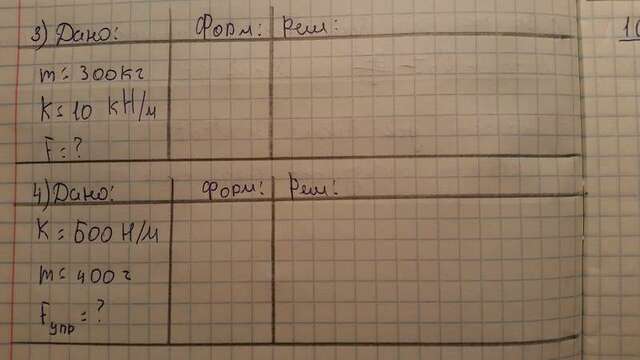 3) Дано: Форм: Реш:
m = 300кг
K = 10 кН/м
F = ?
4) Дано: Форм: Реш:
K = 500 Н/м
m = 400 г
Fупр = ?